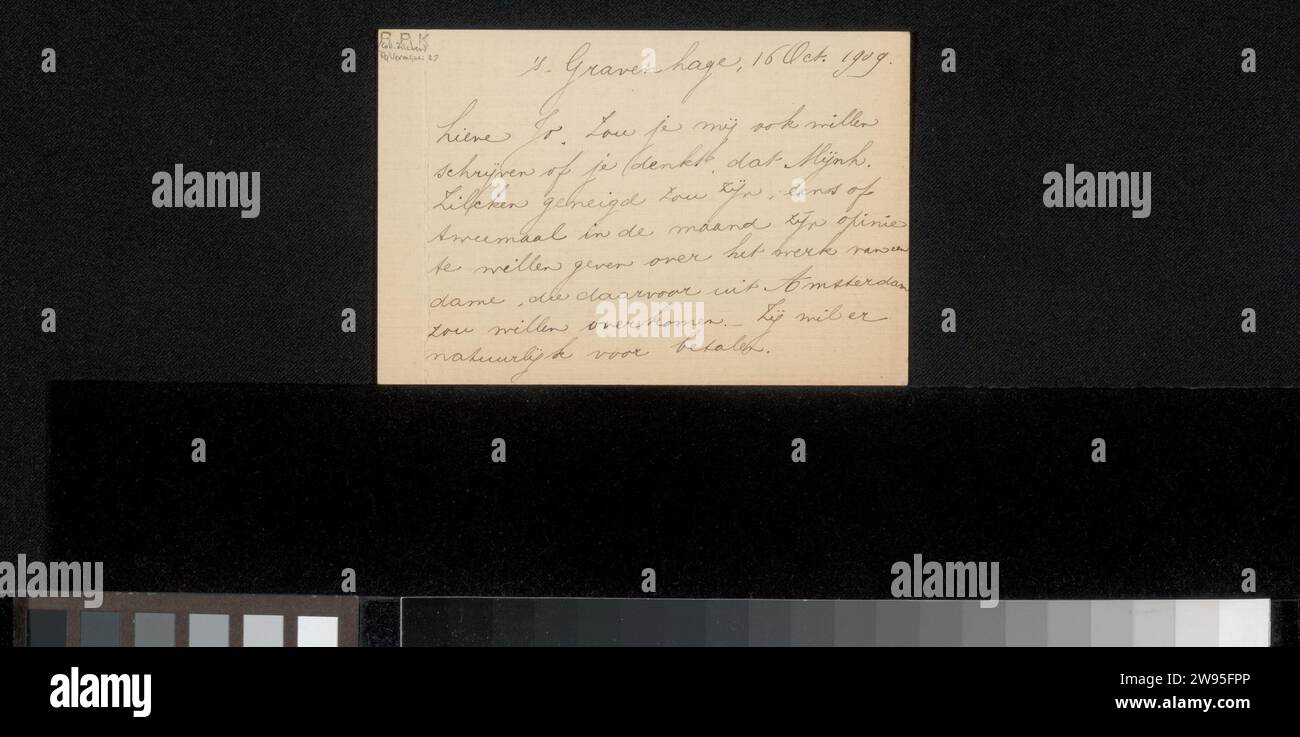 R. P. K
's. Gravenhage, 16 Oct. 1909.
Lieve Jo. Zou je mij ook willen
schrijven of je denkt, dat Mijnh.
Zilcken geneigd zou zijn, eens of
tweemaal in de maand zijn opinie
te willen geven over het werk van een
dame, die daarvoor uit Amsterdam
zou willen overkomen. _ Zij wil er
natuurlijk voor betalen.
alamy
alamy
alamy
alamy
alamy
alamy
Image ID: 2W95FPP
www.alamy.com